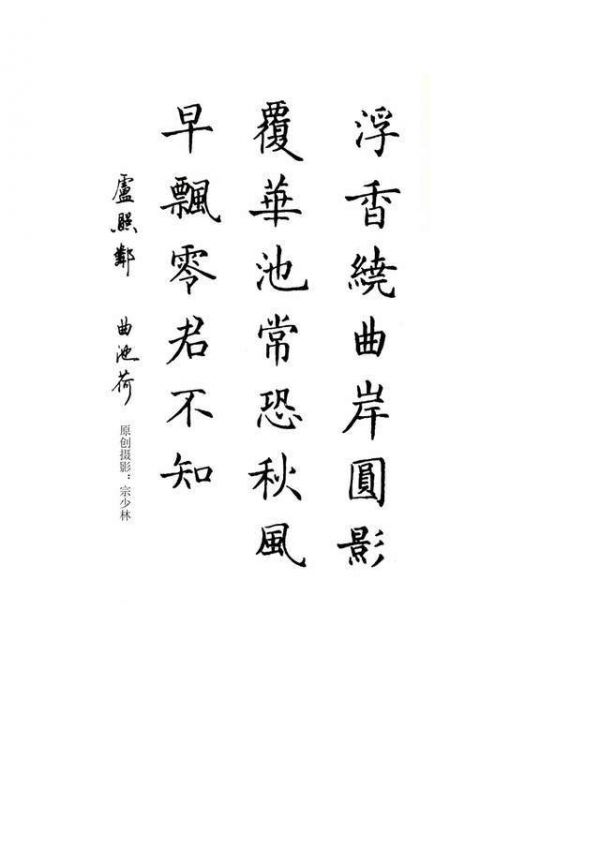 浮香繞曲岸圓影
覆華池常恐秋風
早飄零君不知
盧照鄰 曲池荷
原创摄影：宗少林